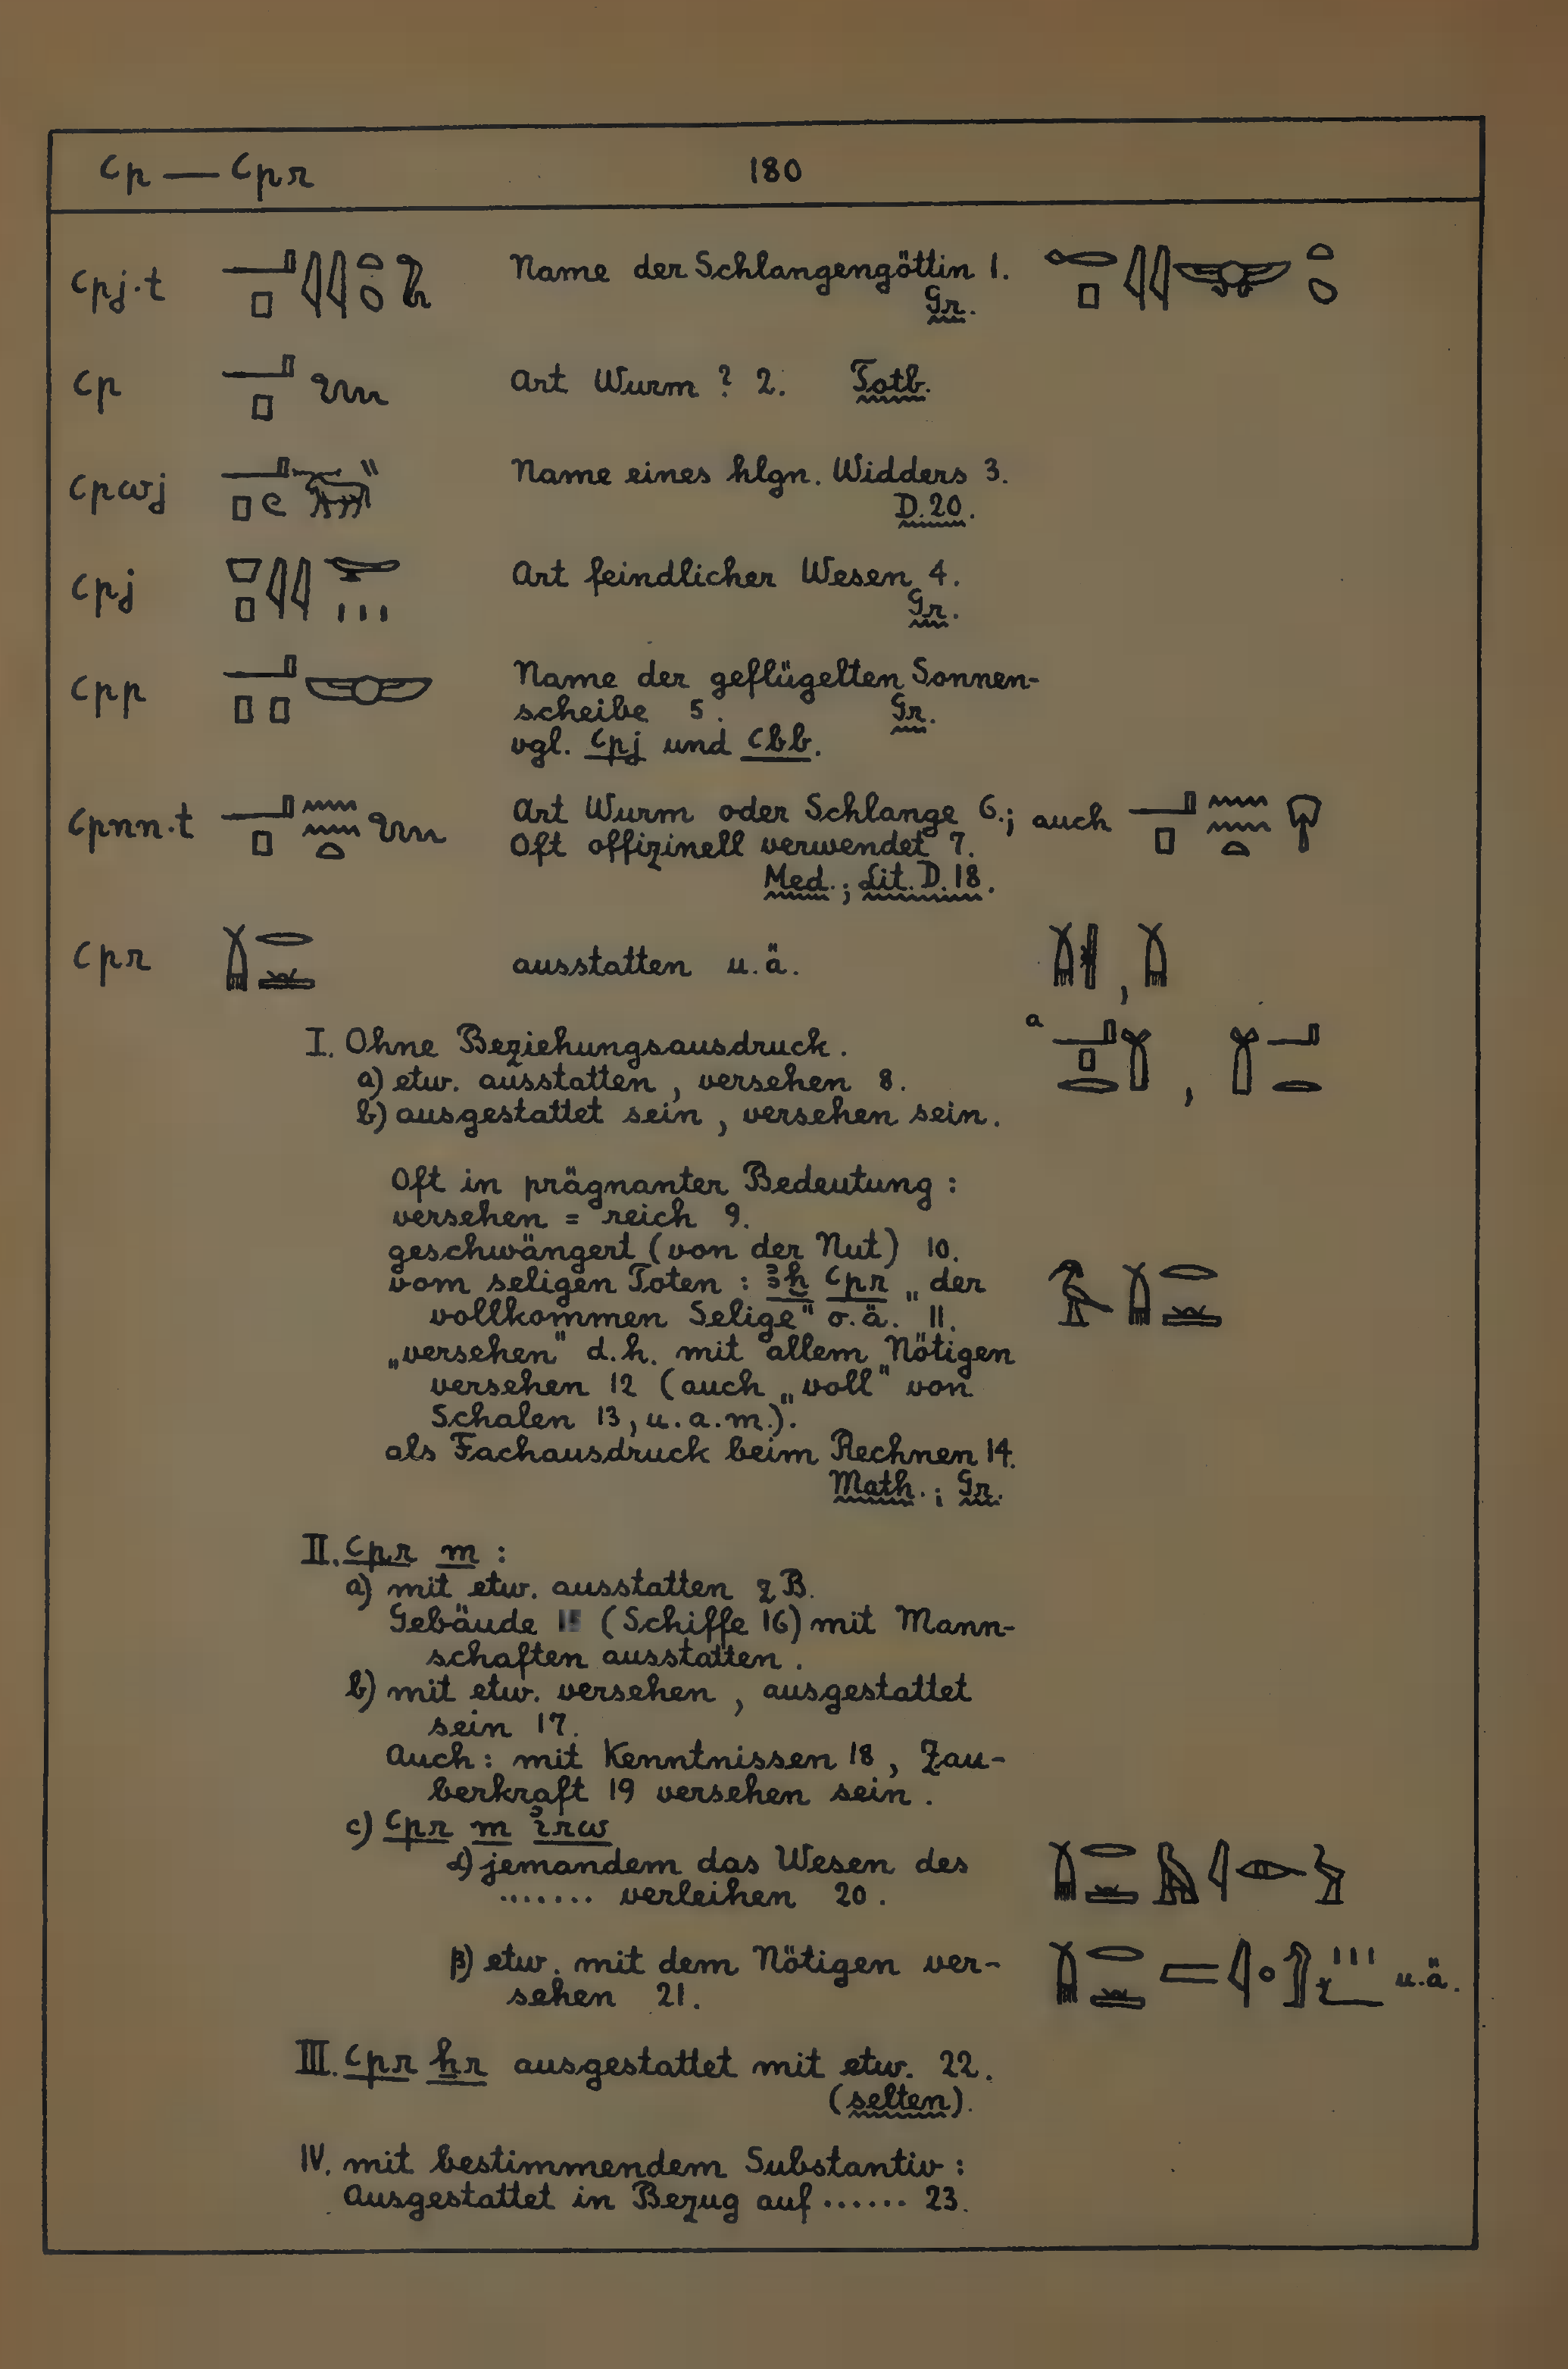 ꜥp — ꜥpr 180
ꜥpj.t Name der Schlangengöttin 1.
Gr.
ꜥp Art Wurm ? 2. Totb.
ꜥpwj Name eines hlgn. Widders 3.
D.20.
ꜥpj Art feindlicher Wesen 4.
Gr.
ꜥpp Name der geflügelten Sonnen-
scheibe 5. Gr.
vgl. ꜥpj und ꜥbb.
ꜥpnn.t Art Wurm oder Schlange 6.; auch
Oft offizinell verwendet 7.
Med.; Lit. D. 18.
ꜥpr ausstatten u.ä. ,
I. Ohne Beziehungsausdruck. a ,
a) etw. ausstatten, versehen 8.
b) ausgestattet sein, versehen sein.
Oft in prägnanter Bedeutung:
versehen = reich 9.
geschwängert (von der Nut) 10.
vom seligen Toten: ꜣḫ ꜥpr „der
vollkommen Selige" o.ä. 11.
„versehen" d.h. mit allem Nötigen
versehen 12 (auch „voll" von
Schalen 13, u.a.m.).
als Fachausdruck beim Rechnen 14.
Math.; Gr.
II. ꜥpr m :
a) mit etw. ausstatten z B.
Gebäude 15 (Schiffe 16) mit Mann-
schaften ausstatten.
b) mit etw. versehen, ausgestattet
sein 17.
Auch: mit Kenntnissen 18, Zau-
berkraft 19 versehen sein.
c) ꜥpr m ỉrw
α) jemandem das Wesen des
....... verleihen 20.
β) etw. mit dem Nötigen ver- u.ä.
sehen 21.
III. ꜥpr ẖr ausgestattet mit etw. 22.
(selten).
IV. mit bestimmendem Substantiv:
Ausgestattet in Bezug auf ...... 23.